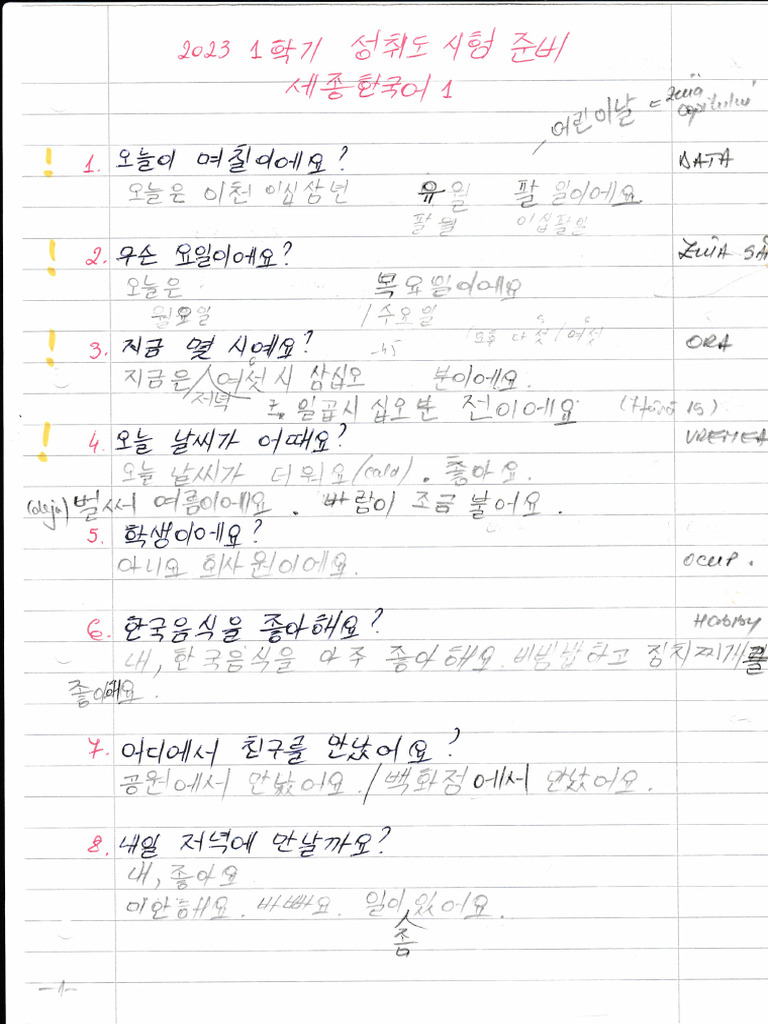 2023 1학기 성취도 시험 준비
세종한국어 1
어린이날 = Ziua
copilului
! 1. 오늘이 며칠이에요? DATA
오늘은 이천 이십삼년 유월 팔 일이에요.
팔월 이십팔일
! 2. 무슨 요일이에요? ZIUA SĂ
오늘은 목요일이에요
월요일 / 수요일
! 3. 지금 몇 시예요? ORA
-45 / 오후 다섯 / 여섯
지금은 여섯 시 삼십오 분이에요.
저녁 일곱시 십오분 전이에요 (fără 15)
! 4. 오늘 날씨가 어때요? VREMEA
오늘 날씨가 더워요 (cald). 좋아요.
(deja) 벌써 여름이에요. 바람이 조금 불어요.
5. 학생이에요?
아니요 회사원이에요. OCUP.
6. 한국음식을 좋아해요? HOBBY
내, 한국음식을 아주 좋아해요. 비빔밥하고 김치찌게를
좋아해요.
7. 어디에서 친구를 만났어요?
공원에서 만났어요. / 백화점에서 만났어요.
8. 내일 저녁에 만날까요?
내, 좋아요
미안해요. 바빠요. 일이 있어요.
좀
-1-